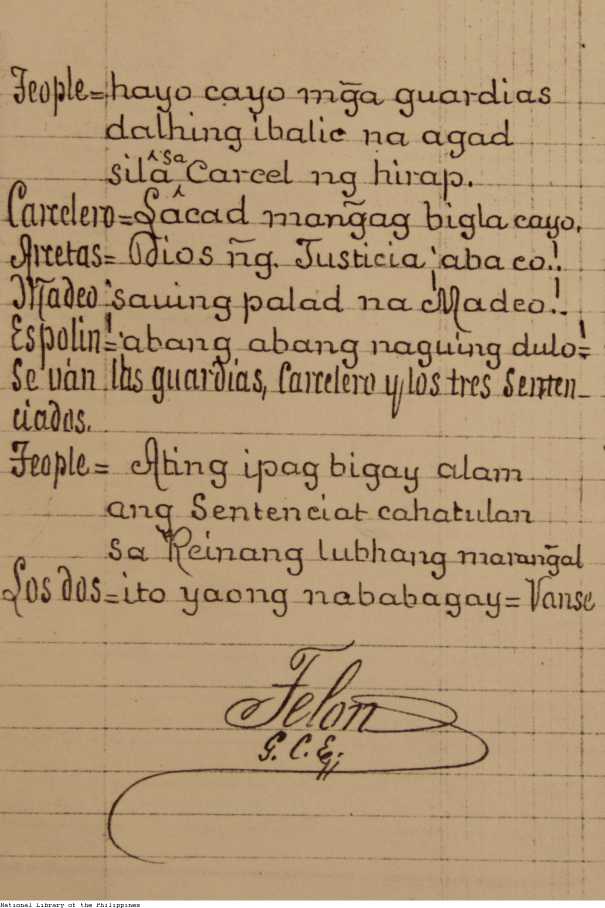 Feople= hayo cayo mg̃a guardias
dalhing ibalic na agad
silâ sa Carcel ng hirap.
Carcelero= Lácad mang̃ag bigla cayo.
Arcetas= Dios ñg. Justicia abaco!.
Madeo: sauing palad na Madeo!.
Espolin! abang abang naguing dulo!
Se ván las guardias, Carcelero y los tres Senten-
ciados.
Feople= Ating ipag bigay alam
ang Sentenciat cahatulan
sa Reinang lubhang marang̃al
Los dos= ito yaong nababagay= Vanse
Telon
G. C. E.
National Library of the Philippines